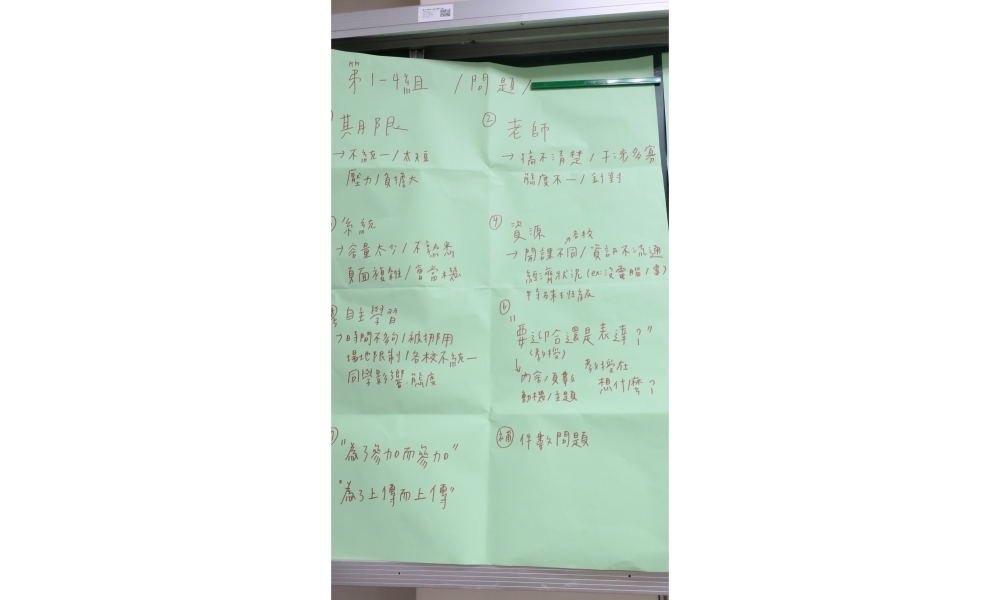 第1-4組 /問題/
期限
→不統一/太短
壓力/負擔大
② 老師
→搞不清楚/干涉多寡
態度不一/針對
系統
→容量太少/不熟悉
頁面複雜/會當機
④ 資源
↗各校
→開課不同/資訊不流通
經濟狀況(ex:沒電腦/書)
特殊班級
自主學習
→時間不夠/被挪用
場地限制/各校不統一
同學影響.態度
⑥
"要迎合還是表達?"
(教授)
↳內容/頁數
動機/主題
教授在
想什麼?
"為了參加而參加"
"為了上傳而上傳"
補 件數問題